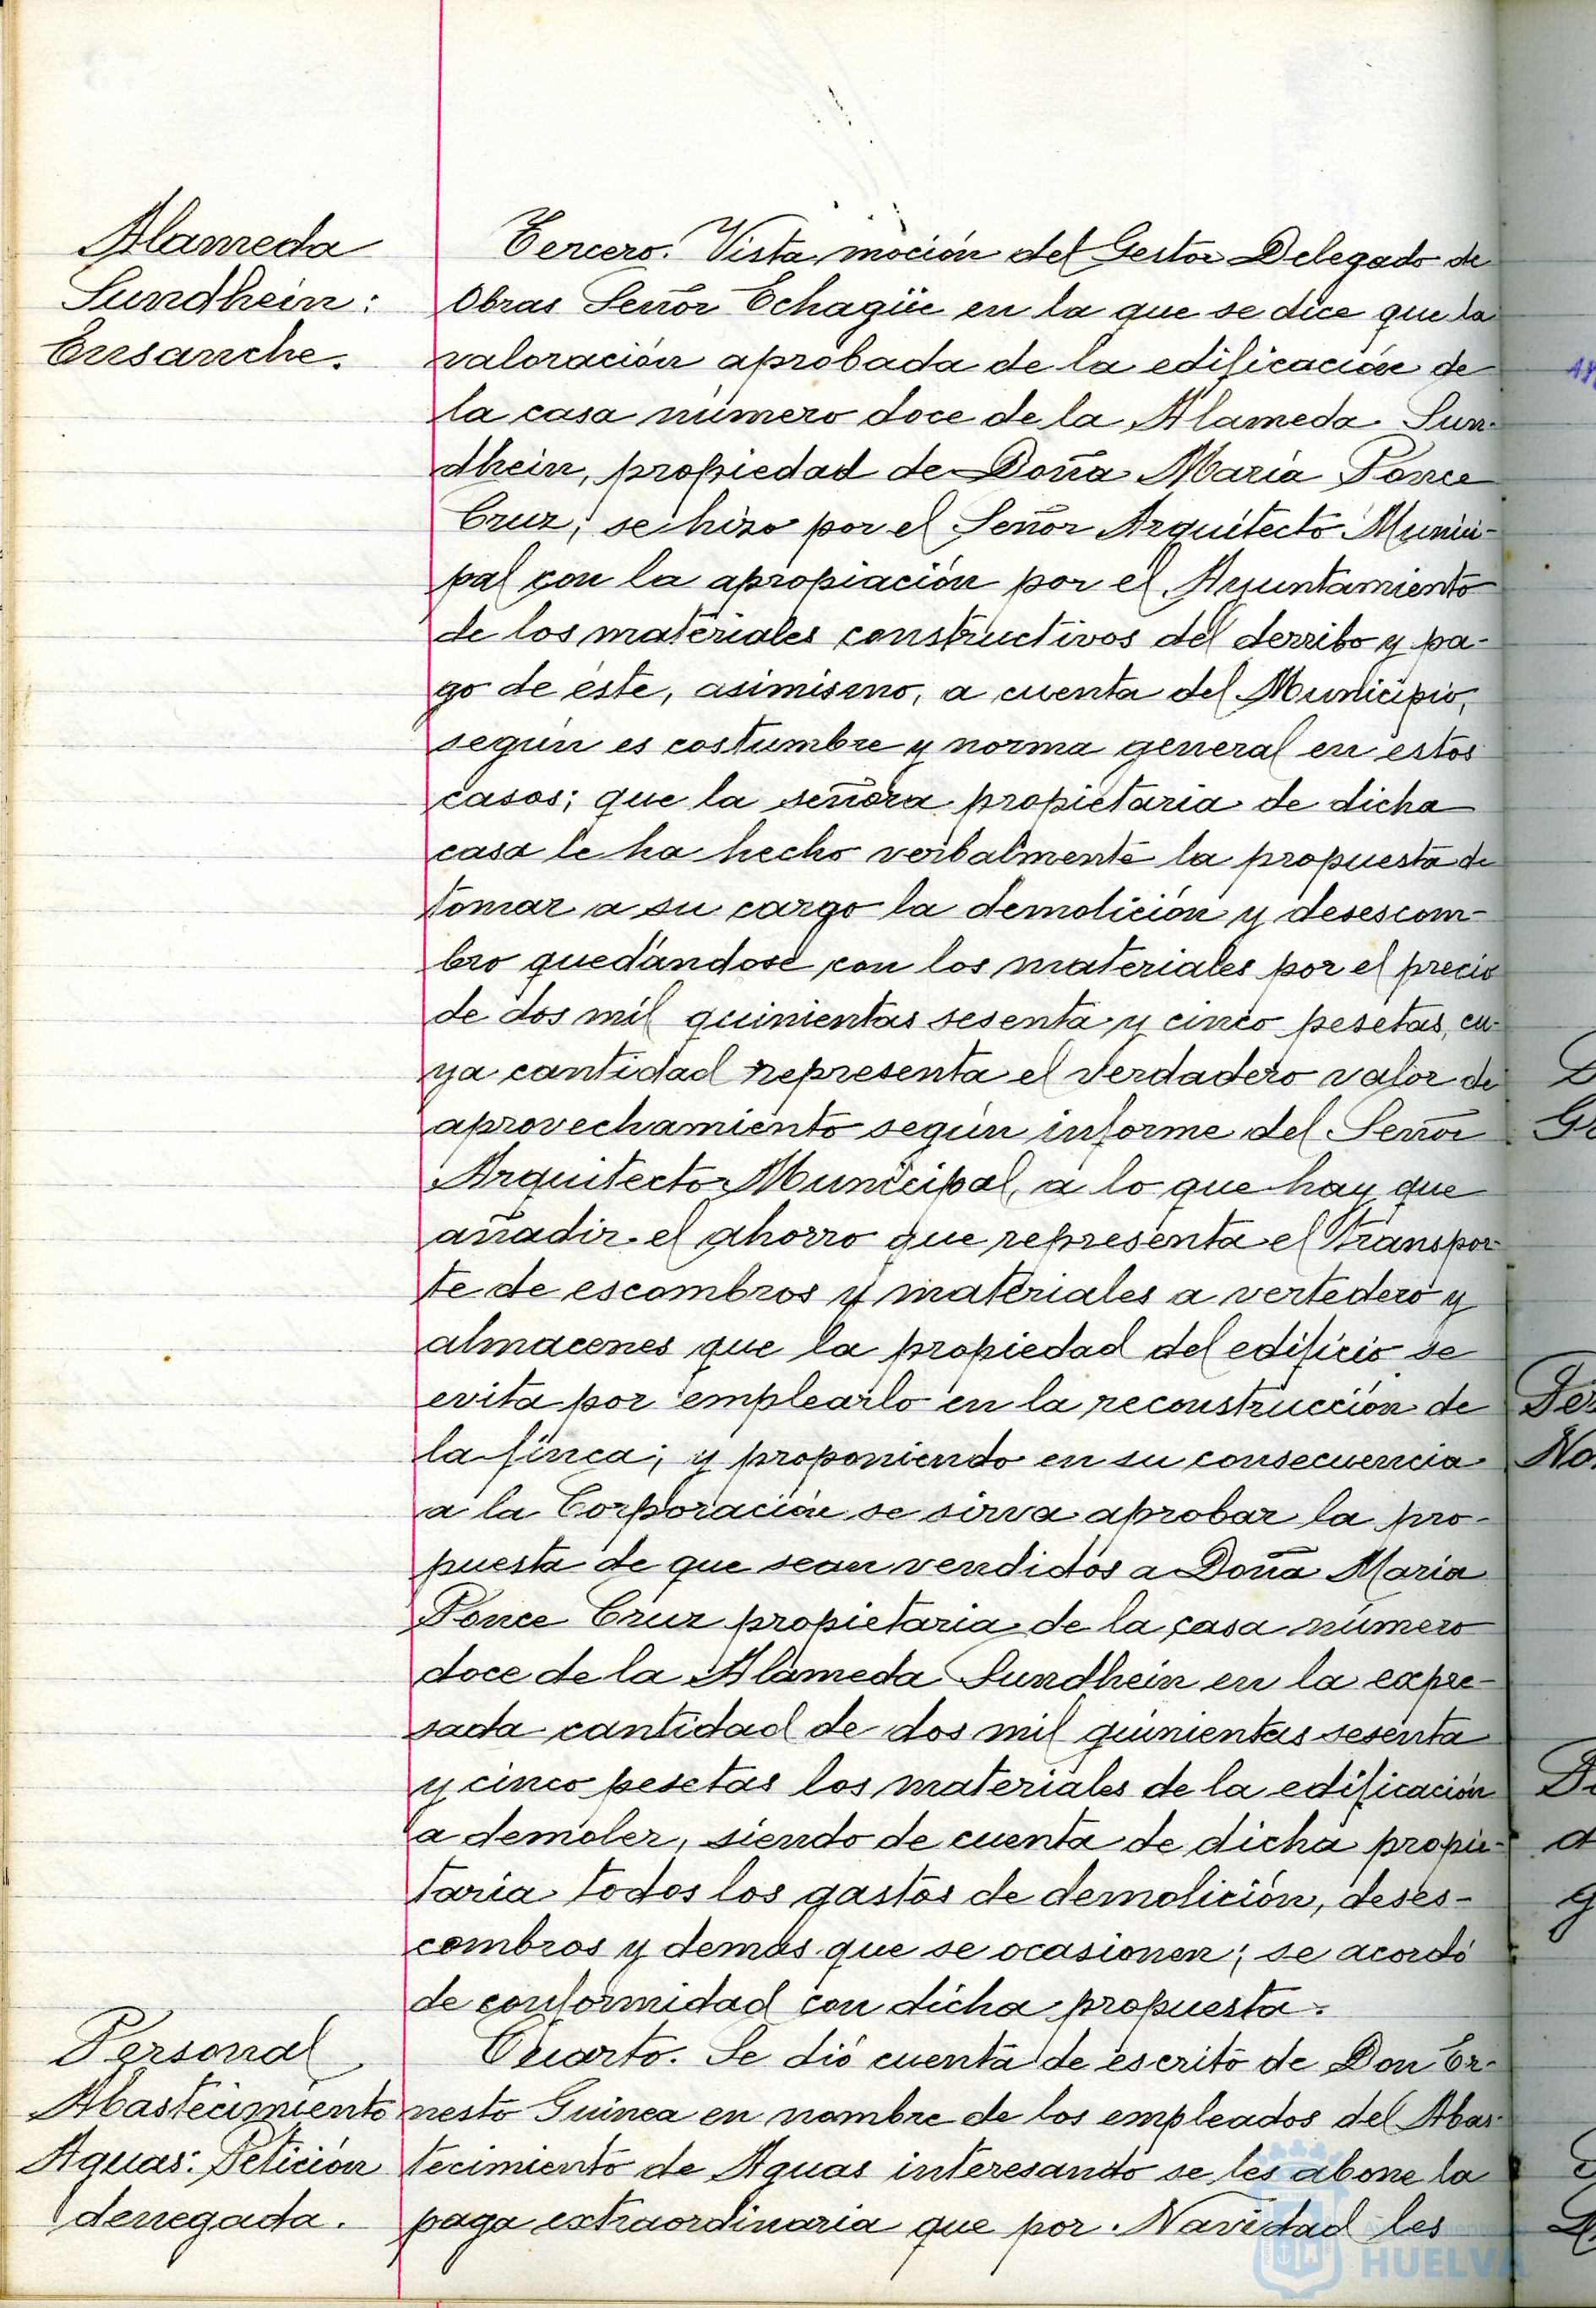 Alameda
Sundhein:
Ensanche.
Tercero. Vista moción del Gestor Delegado de
Obras Señor Echagüe en la que se dice que la
valoración aprobada de la edificación de
la casa número doce de la Alameda Sun-
dhein, propiedad de Doña Maria Ponce
Cruz, se hizo por el Señor Arquitecto Munici-
pal con la apropiación por el Ayuntamiento
de los materiales constructivos del derribo y pa-
go de éste, asimismo, a cuenta del Municipio,
según es costumbre y norma general en estos
casos; que la señora propietaria de dicha
casa le ha hecho verbalmente la propuesta de
tomar a su cargo la demolición y desescom-
bro quedándose con los materiales por el precio
de dos mil quinientas sesenta y cinco pesetas, cu-
ya cantidad representa el verdadero valor de
aprovechamiento según informe del Señor
Arquitecto Municipal, a lo que hay que
añadir el ahorro que representa el transpor-
te de escombros y materiales a vertedero y
almacenes que la propiedad del edificio se
evita por emplearlo en la reconstrucción de
la finca; y proponiendo en su consecuencia
a la Corporación se sirva aprobar la pro-
puesta de que sean vendidos a Doña Maria
Ponce Cruz propietaria de la casa número
doce de la Alameda Sundhein en la expre-
sada cantidad de dos mil quinientas sesenta
y cinco pesetas los materiales de la edificación
a demoler, siendo de cuenta de dicha propie-
taria todos los gastos de demolición, deses-
combros y demás que se ocasionen; se acordó
de conformidad con dicha propuesta.
Personal
Abastecimiento
Aguas: Petición
denegada.
Cuarto. Se dió cuenta de escrito de Don Er-
nesto Guinea en nombre de los empleados del Abas-
tecimiento de Aguas interesando se les abone la
paga extraordinaria que por Navidad les
HUELVA